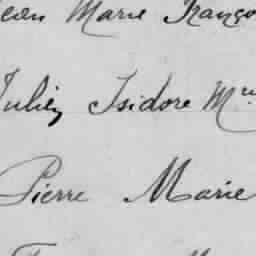 Jean Marie Franço
Julien Isidore Mie
Pierre Marie